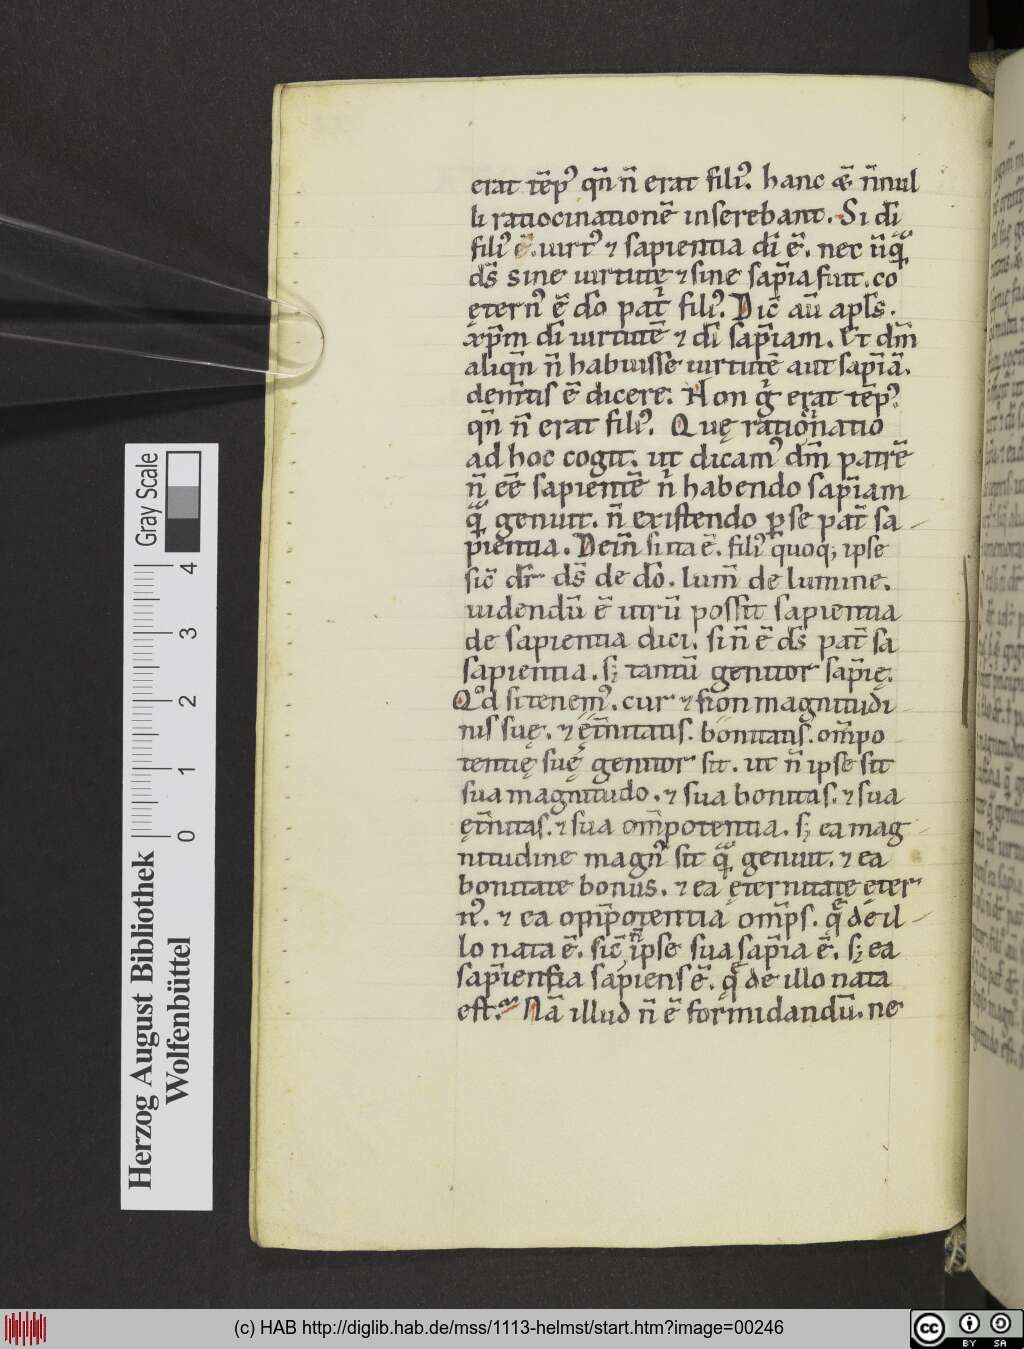 erat tēpꝰ qn̄ n̄ erat filiꝰ. hanc &̄ n̄nul
li ratiocinationē inserebant. Si di̅
filiꝰ ē. uirtꝰ ⁊ sapientia di̅ ē. nec
ds̄ sine uirtute ⁊ sine sap̄ia fuit. co
ęternꝰ ē dō pat̄ filiꝰ. Dic̄ au̅ apl̄s.
xp̄m di̅ uirtutē ⁊ di̅ sap̄iam. Ut dm̄
aliqn̄ n̄ habuisse uirtutē aut sap̄iā.
dem̄tis ē dicere. Non g̊ erat tēpꝰ
qn̄ n̄ erat filiꝰ. Quę ratiocinatio
ad hoc cogit. ut dicamꝰ dm̄ patrē
n̄ eē sapientē n̄ habendo sap̄iam
genuit. n̄ existendo ꝑ se pat̄ sa
pientia. Dein̄ si ita ē. filiꝰ quoqꝫ ipse
sic̄ dr̄ ds̄ de dō. lum̄ de lumine.
uidendū ē utrū possit sapientia
de sapientia dici. si n̄ ē ds̄ pat̄ sa
sapientia. sꝫ tantū genitor sap̄ię.
Qd̊ si tenemꝰ. cur ⁊ n̄ on magnitudi
nis suę. ⁊ ęt̄nitatis. bonitatis. om̄ipo
tentię suę genitor sit. ut n̄ ipse sit
sua magnitudo. ⁊ sua bonitas. ⁊ sua
ęt̄nitas. ⁊ sua om̄ipotentia. sꝫ ea mag
nitudine magnꝰ sit genuit. ⁊ ea
bonitate bonus. ⁊ ea ęternitate ęter
nꝰ. ⁊ ea om̄ipotentia om̄ps. q̄ de il
lo nata ē. sic̄ ipse sua sap̄ia ē. sꝫ ea
sap̄ientia sapiens ē. q̄ de illo nata
est. Nā illud n̄ ē formidandū. ne
Herzog August Bibliothek
Wolfenbüttel
Gray Scale
0 1 2 3 4
(c) HAB http://diglib.hab.de/mss/1113-helmst/start.htm?image=00246
cc BY SA